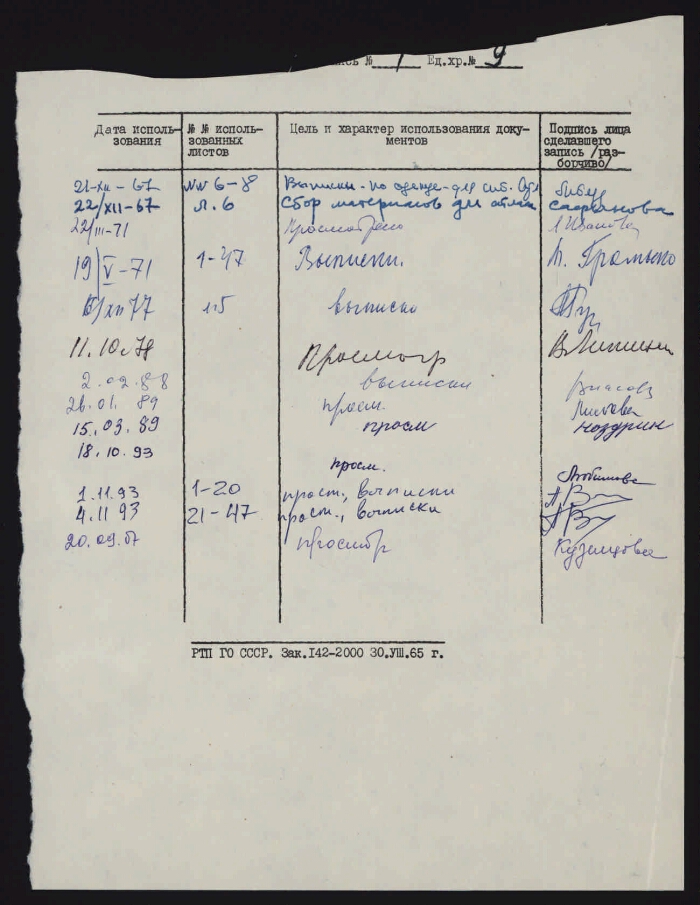 № 1 Ед.хр.№ 9
Дата исполь-зования № № исполь-зованных листов Цель и характер использования доку-ментов Подпись лица сделавшего запись /раз-борчиво/
21-XII-67 №№ 6-8 Выписки - по одежде - для сиб.
22/XII-67 л. 6 Сбор материалов для атласа Сафьянова
22/III-71 Просмотрено Л Иванова
19/V-71 1-47 Выписки. Громыко
XII 77 15 выписки
11.10.78 Просмотр
2.02.88 выписки Власова
26.01.89 просм.
15.03.89 просм Ноздрин
18.10.93
просм. Любимова
1.11.93 1-20 просм., выписки
4.11 93 21-47 просм., выписки
20.09.07 просмотр Кузнецова
РТП ГО СССР. Зак.142-2000 30.УШ.65 г.